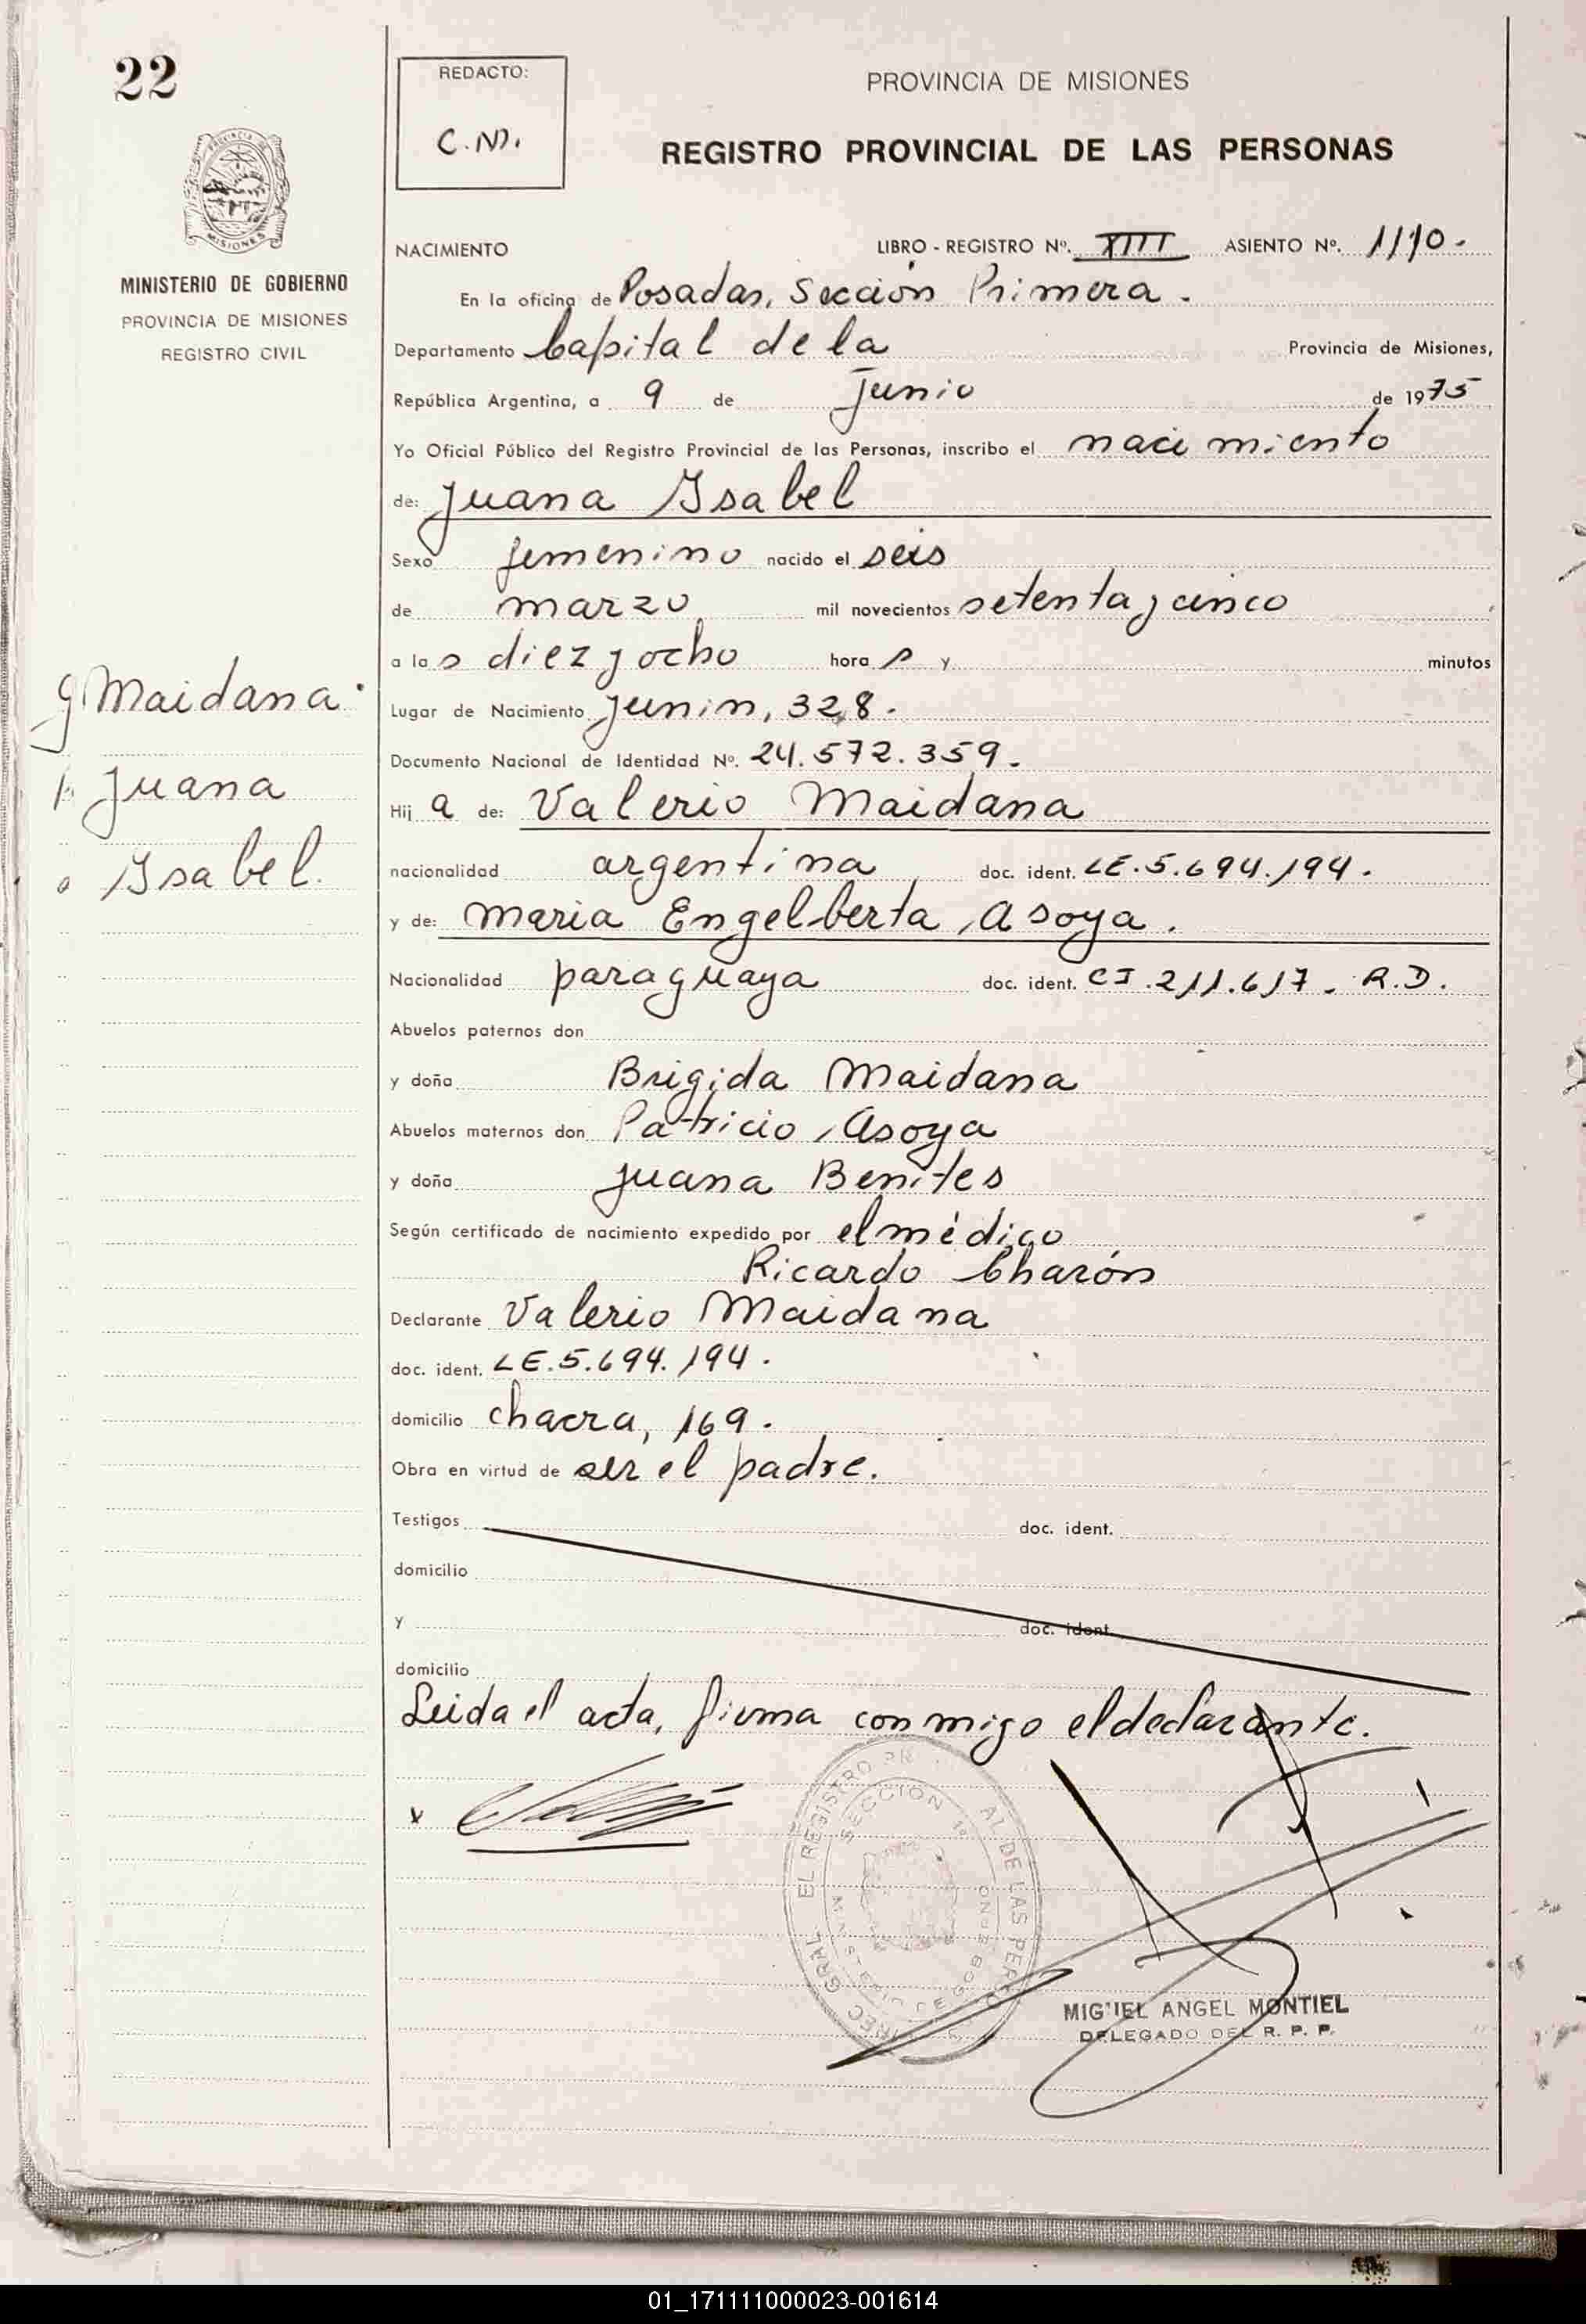 22
PROVINCIA DE MISIONES
MINISTERIO DE GOBIERNO
PROVINCIA DE MISIONES
REGISTRO CIVIL
Maidana
Juana
Isabel.
REDACTO:
C.M.
PROVINCIA DE MISIONES
REGISTRO PROVINCIAL DE LAS PERSONAS
NACIMIENTO LIBRO - REGISTRO Nº. XIII ASIENTO Nº. 1110.
En la oficina de Posadas, Sección Primera.
Departamento Capital de la Provincia de Misiones,
República Argentina, a 9 de Junio de 1975
Yo Oficial Público del Registro Provincial de las Personas, inscribo el nacimiento
de: Juana Isabel
Sexo femenino nacido el seis
de marzo mil novecientos setenta y cinco
a las diez y ocho horas y minutos
Lugar de Nacimiento Junin, 328.
Documento Nacional de Identidad Nº. 24.572.359.
Hija de: Valerio Maidana
nacionalidad argentina doc. ident. LE.5.694.194.
y de: Maria Engelberta Asoya.
Nacionalidad paraguaya doc. ident. CI.211.617. R.D.
Abuelos paternos don
y doña Brigida Maidana
Abuelos maternos don Patricio Asoya
y doña Juana Benites
Según certificado de nacimiento expedido por el médico
Ricardo Charón
Declarante Valerio Maidana
doc. ident. LE.5.694.194.
domicilio chacra, 169.
Obra en virtud de ser el padre.
Testigos doc. ident.
domicilio
y doc. ident.
domicilio
Leida el acta, firma conmigo el declarante.
x
SECCION 1ª
MINISTERIO DE GOBIERNO
MIGUEL ANGEL MONTIEL
DELEGADO DEL R. P. P.
01_171111000023-001614